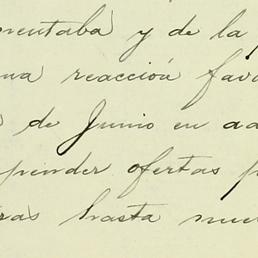 mentaba y de la p
una reacción favo
de Junio en ad
pender ofertas p
ras hasta nue